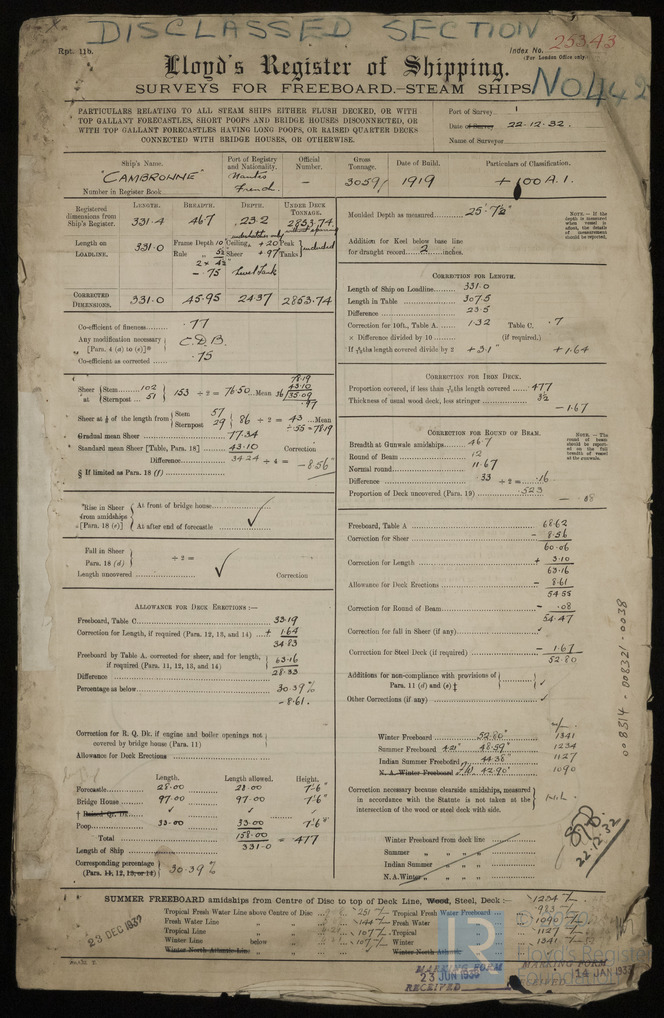 DISCLASSED SECTION
Rpt. 11b.
Index No. 25343
(For London Office only.)
Lloyd's Register of Shipping.
SURVEYS FOR FREEBOARD.—STEAM SHIPS
No 442
PARTICULARS RELATING TO ALL STEAM SHIPS EITHER FLUSH DECKED, OR WITH
TOP GALLANT FORECASTLES, SHORT POOPS AND BRIDGE HOUSES DISCONNECTED, OR
WITH TOP GALLANT FORECASTLES HAVING LONG POOPS, OR RAISED QUARTER DECKS
CONNECTED WITH BRIDGE HOUSES, OR OTHERWISE.
Port of Survey
Date of Survey 22.12.32.
Name of Surveyor
Ship's Name. Port of Registry and Nationality. Official Number. Gross Tonnage. Date of Build. Particulars of Classification.
"CAMBRONNE" Nantes French. — 3059 1919 +100 A.1.
Number in Register Book
Registered dimensions from Ship's Register. LENGTH. 331.4 BREADTH. 46.7 DEPTH. 23.2 UNDER DECK TONNAGE. 2853.74
Length on LOADLINE. 331.0 Frame Depth 10" Ceiling + 20 Peak Tanks included
Rule Sheer + 97
- .75
CORRECTED DIMENSIONS. 331.0 45.95 24.37 2853.74
Moulded Depth as measured 25' 7½"
NOTE.—If the depth is measured when vessel is afloat, the details of measurement should be reported.
Addition for Keel below base line
for draught record 2 inches.
Co-efficient of fineness .77
Any modification necessary [Para. 4 (a) to (e)]* C.D.B.
Co-efficient as corrected .75
CORRECTION FOR LENGTH.
Length of Ship on Loadline 331.0
Length in Table 307.5
Difference 23.5
Correction for 10ft., Table A. 1.32 Table C. .7
× Difference divided by 10 (if required.)
If 6/10ths length covered divide by 2 +3.1" +1.64
Sheer at Stem 102 Sternpost 51 153 ÷ 2 = 76.50 Mean
78.19
43.10
36/35.09
.97
Sheer at ⅛ of the length from Stem 57 Sternpost 29 86 ÷ 2 = 43 Mean
÷ .55 = 78.19
Gradual mean Sheer 77.34
Standard mean Sheer [Table, Para. 18] 43.10 Correction
Difference 34.24 ÷ 4 = -8.56"
§ If limited as Para. 18 (f)
CORRECTION FOR IRON DECK.
Proportion covered, if less than 7/10ths length covered .477
Thickness of usual wood deck, less stringer 3½
- 1.67
CORRECTION FOR ROUND OF BEAM.
Breadth at Gunwale amidships 46.7
Round of Beam 12
Normal round 11.67
Difference .33 ÷ 2 = .16
Proportion of Deck uncovered (Para. 19) .523
- .08
NOTE.—The round of beam should be reported on the full breadth of vessel at the gunwale.
*Rise in Sheer from amidships [Para. 18 (e)] At front of bridge house
At after end of forecastle ✓
Fall in Sheer Para. 18 (d) ÷ 2 = ✓
Length uncovered Correction
Freeboard, Table A 68.62
Correction for Sheer - 8.56
60.06
Correction for Length + 3.10
63.16
Allowance for Deck Erections - 8.61
54.55
Correction for Round of Beam - .08
54.47
Correction for fall in Sheer (if any) ✓
Correction for Steel Deck (if required) - 1.67
52.80
Additions for non-compliance with provisions of Para. 11 (d) and (e) ‡ ✓
Other Corrections (if any) ✓
ALLOWANCE FOR DECK ERECTIONS :—
Freeboard, Table C 33.19
Correction for Length, if required (Para. 12, 13, and 14) + 1.64
34.83
Freeboard by Table A. corrected for sheer, and for length, if required (Para. 11, 12, 13, and 14) 63.16
Difference 28.33
Percentage as below 30.39%
- 8.61.
Correction for R. Q. Dk. if engine and boiler openings not
covered by bridge house (Para. 11)
Allowance for Deck Erections
Winter Freeboard 52.80" 1341
Summer Freeboard 4.21" 48.59" 1234
Indian Summer Freeboard 44.38" 1127
N. A. Winter Freeboard 42.90" 1090
Correction necessary because clearside amidships, measured
in accordance with the Statute is not taken at the
intersection of the wood or steel deck with side.
Length. Length allowed. Height.
Forecastle 28.00 28.00 7'-6"
Bridge House 97.00 97.00 7'-6"
† Raised Qr. Dk. ✓ ✓
Poop 33.00 33.00 7'-6"
Total 158.00 = .477
Length of Ship 331.0
Corresponding percentage (Para. 11, 12, 13, or 14) 30.39%
Winter Freeboard from deck line
Summer
Indian Summer
N. A. Winter
22.12.32
008314-008321-0038
SUMMER FREEBOARD amidships from Centre of Disc to top of Deck Line, Wood, Steel, Deck :— 1234
Tropical Fresh Water Line above Centre of Disc 251 Tropical Fresh Water Freeboard 983
Fresh Water Line 144 Fresh Water 1090
Tropical Line 107 Tropical 1127
Winter Line below 107 Winter 1341
Winter North Atlantic Line Winter North Atlantic
23 DEC 1932
MARKING FORM
23 JUN 1933
RECEIVED
MARKING FORM
14 JAN 1933
RECEIVED
LR
Lloyd's Register
Foundation